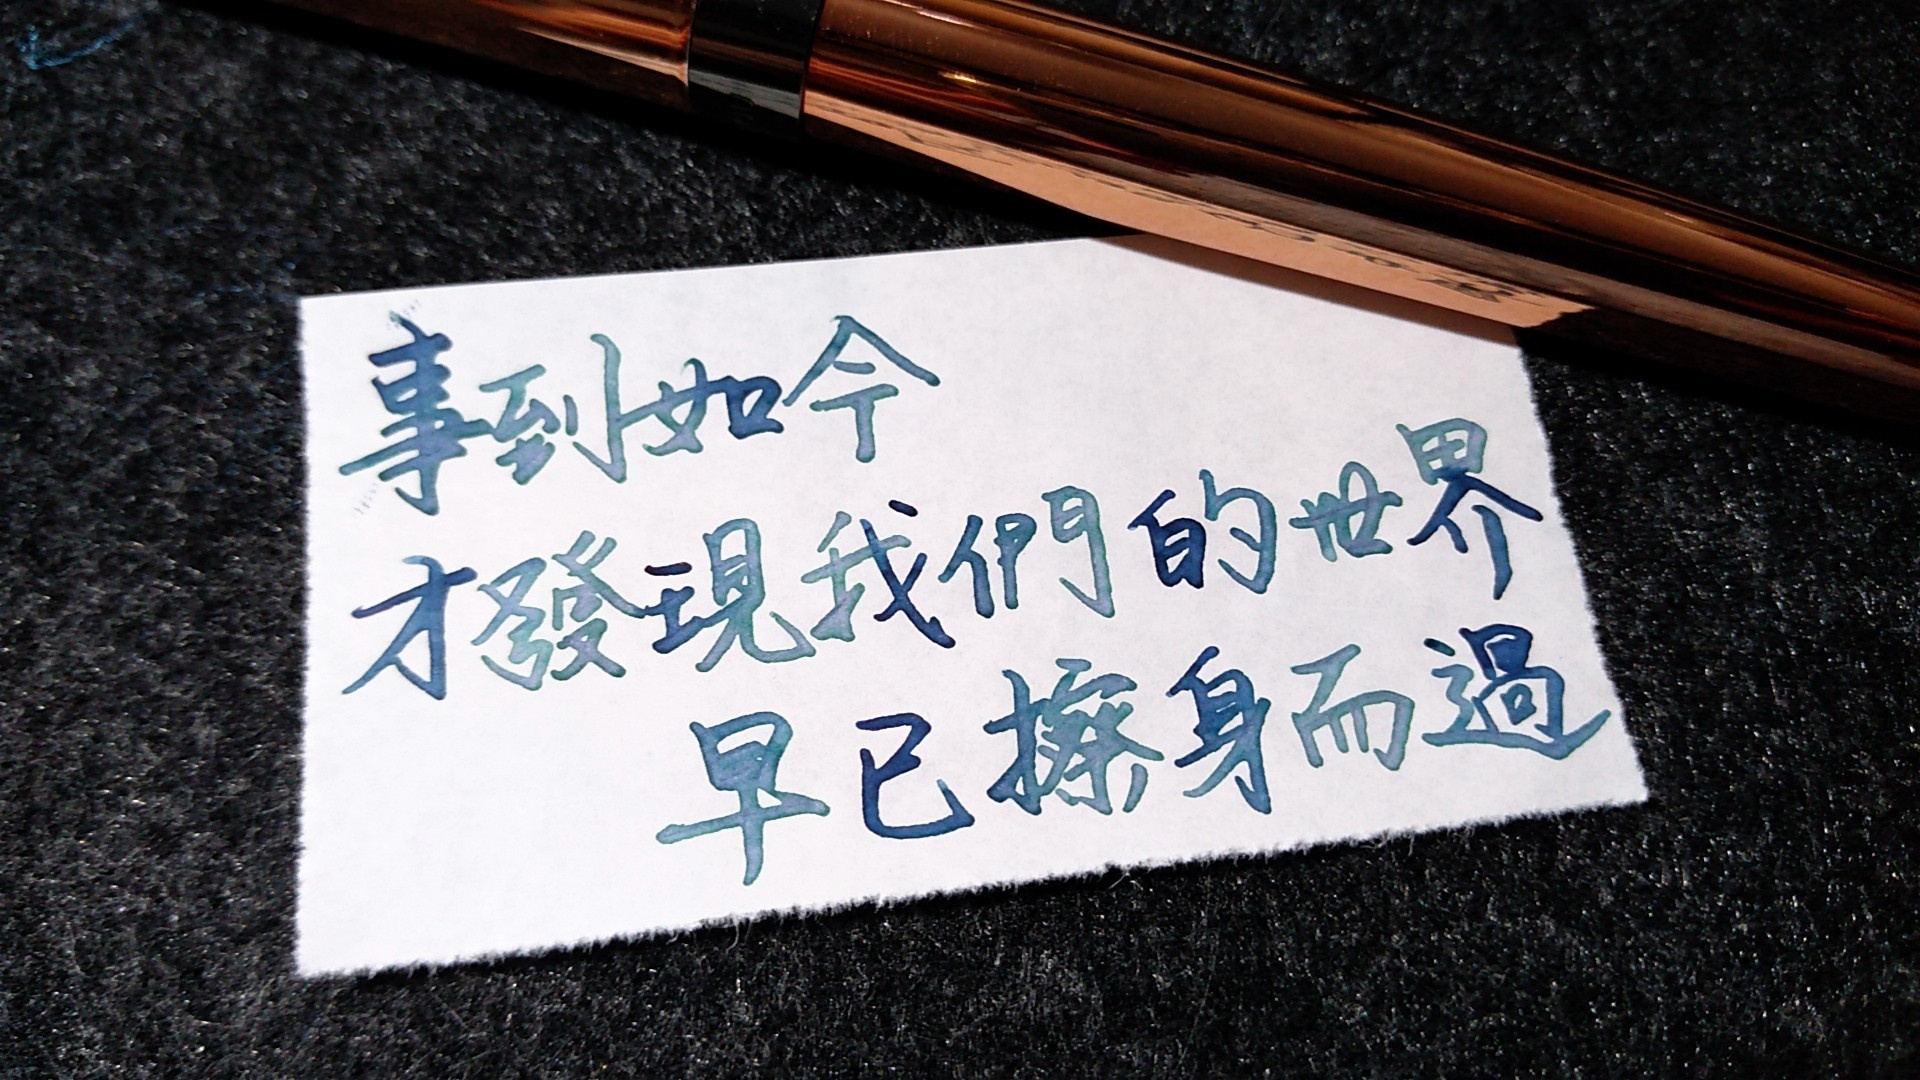 事到如今
才發現我們的世界
早已擦身而過